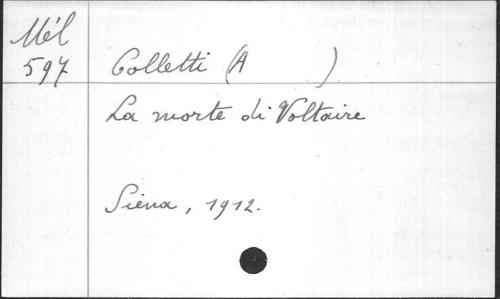 Mél
597
Colletti (A )
La morte di Voltaire
Siena, 1912.